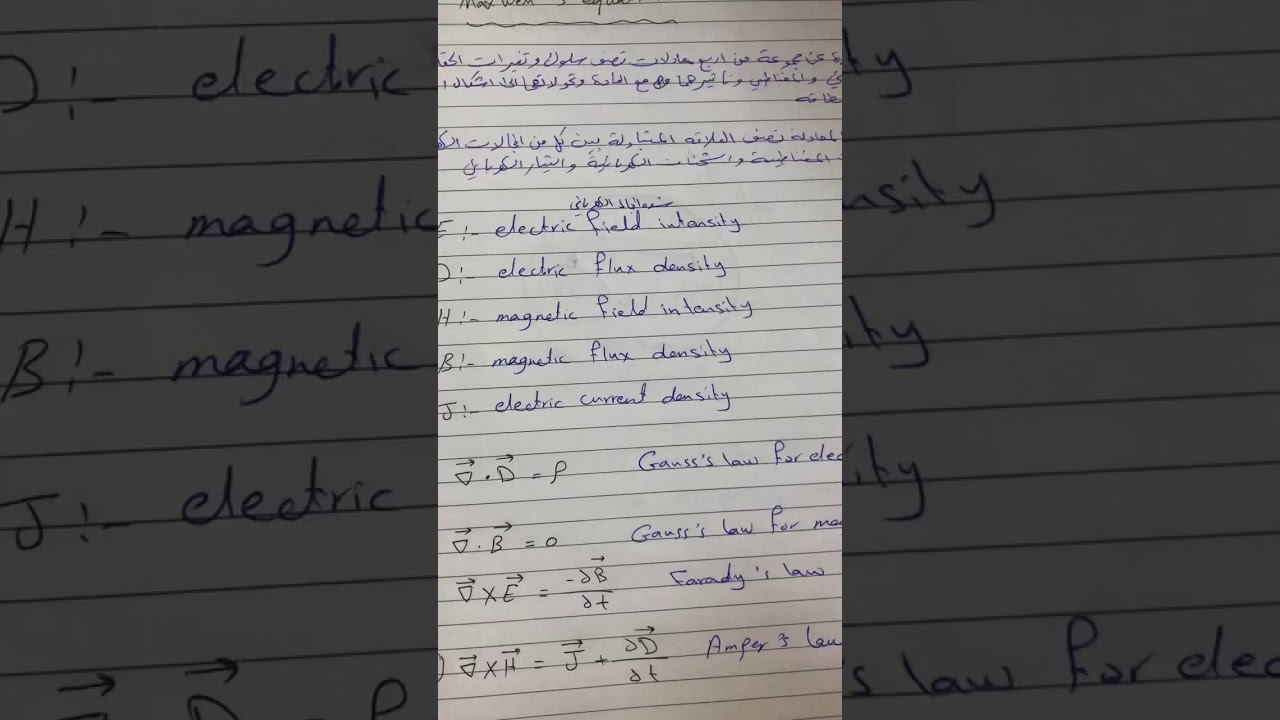 Maxwell's equa
عن مجموعة من اربع معادلات تصف سلوك وتغيرات
والمغناطيسي وتأثيرهما مع المادة وتحولاتها الى اشكال
المعادلة تصف العلاقه المتبادلة بين كل من المجالات
المغناطيسية والشحنات الكهربائية والتيار الكهربائي
شدة المجال الكهربائي
E :- electric field intensity
D :- electric flux density
H :- magnetic field intensity
B :- magnetic flux density
J :- electric current density
∇⃗ . D⃗ = ρ Gauss's law for elec
∇⃗ . B⃗ = 0 Gauss's law for mag
∇⃗ × E⃗ = -∂B⃗/∂t Farady's law
) ∇⃗ × H⃗ = J⃗ + ∂D⃗/∂t Amper's law